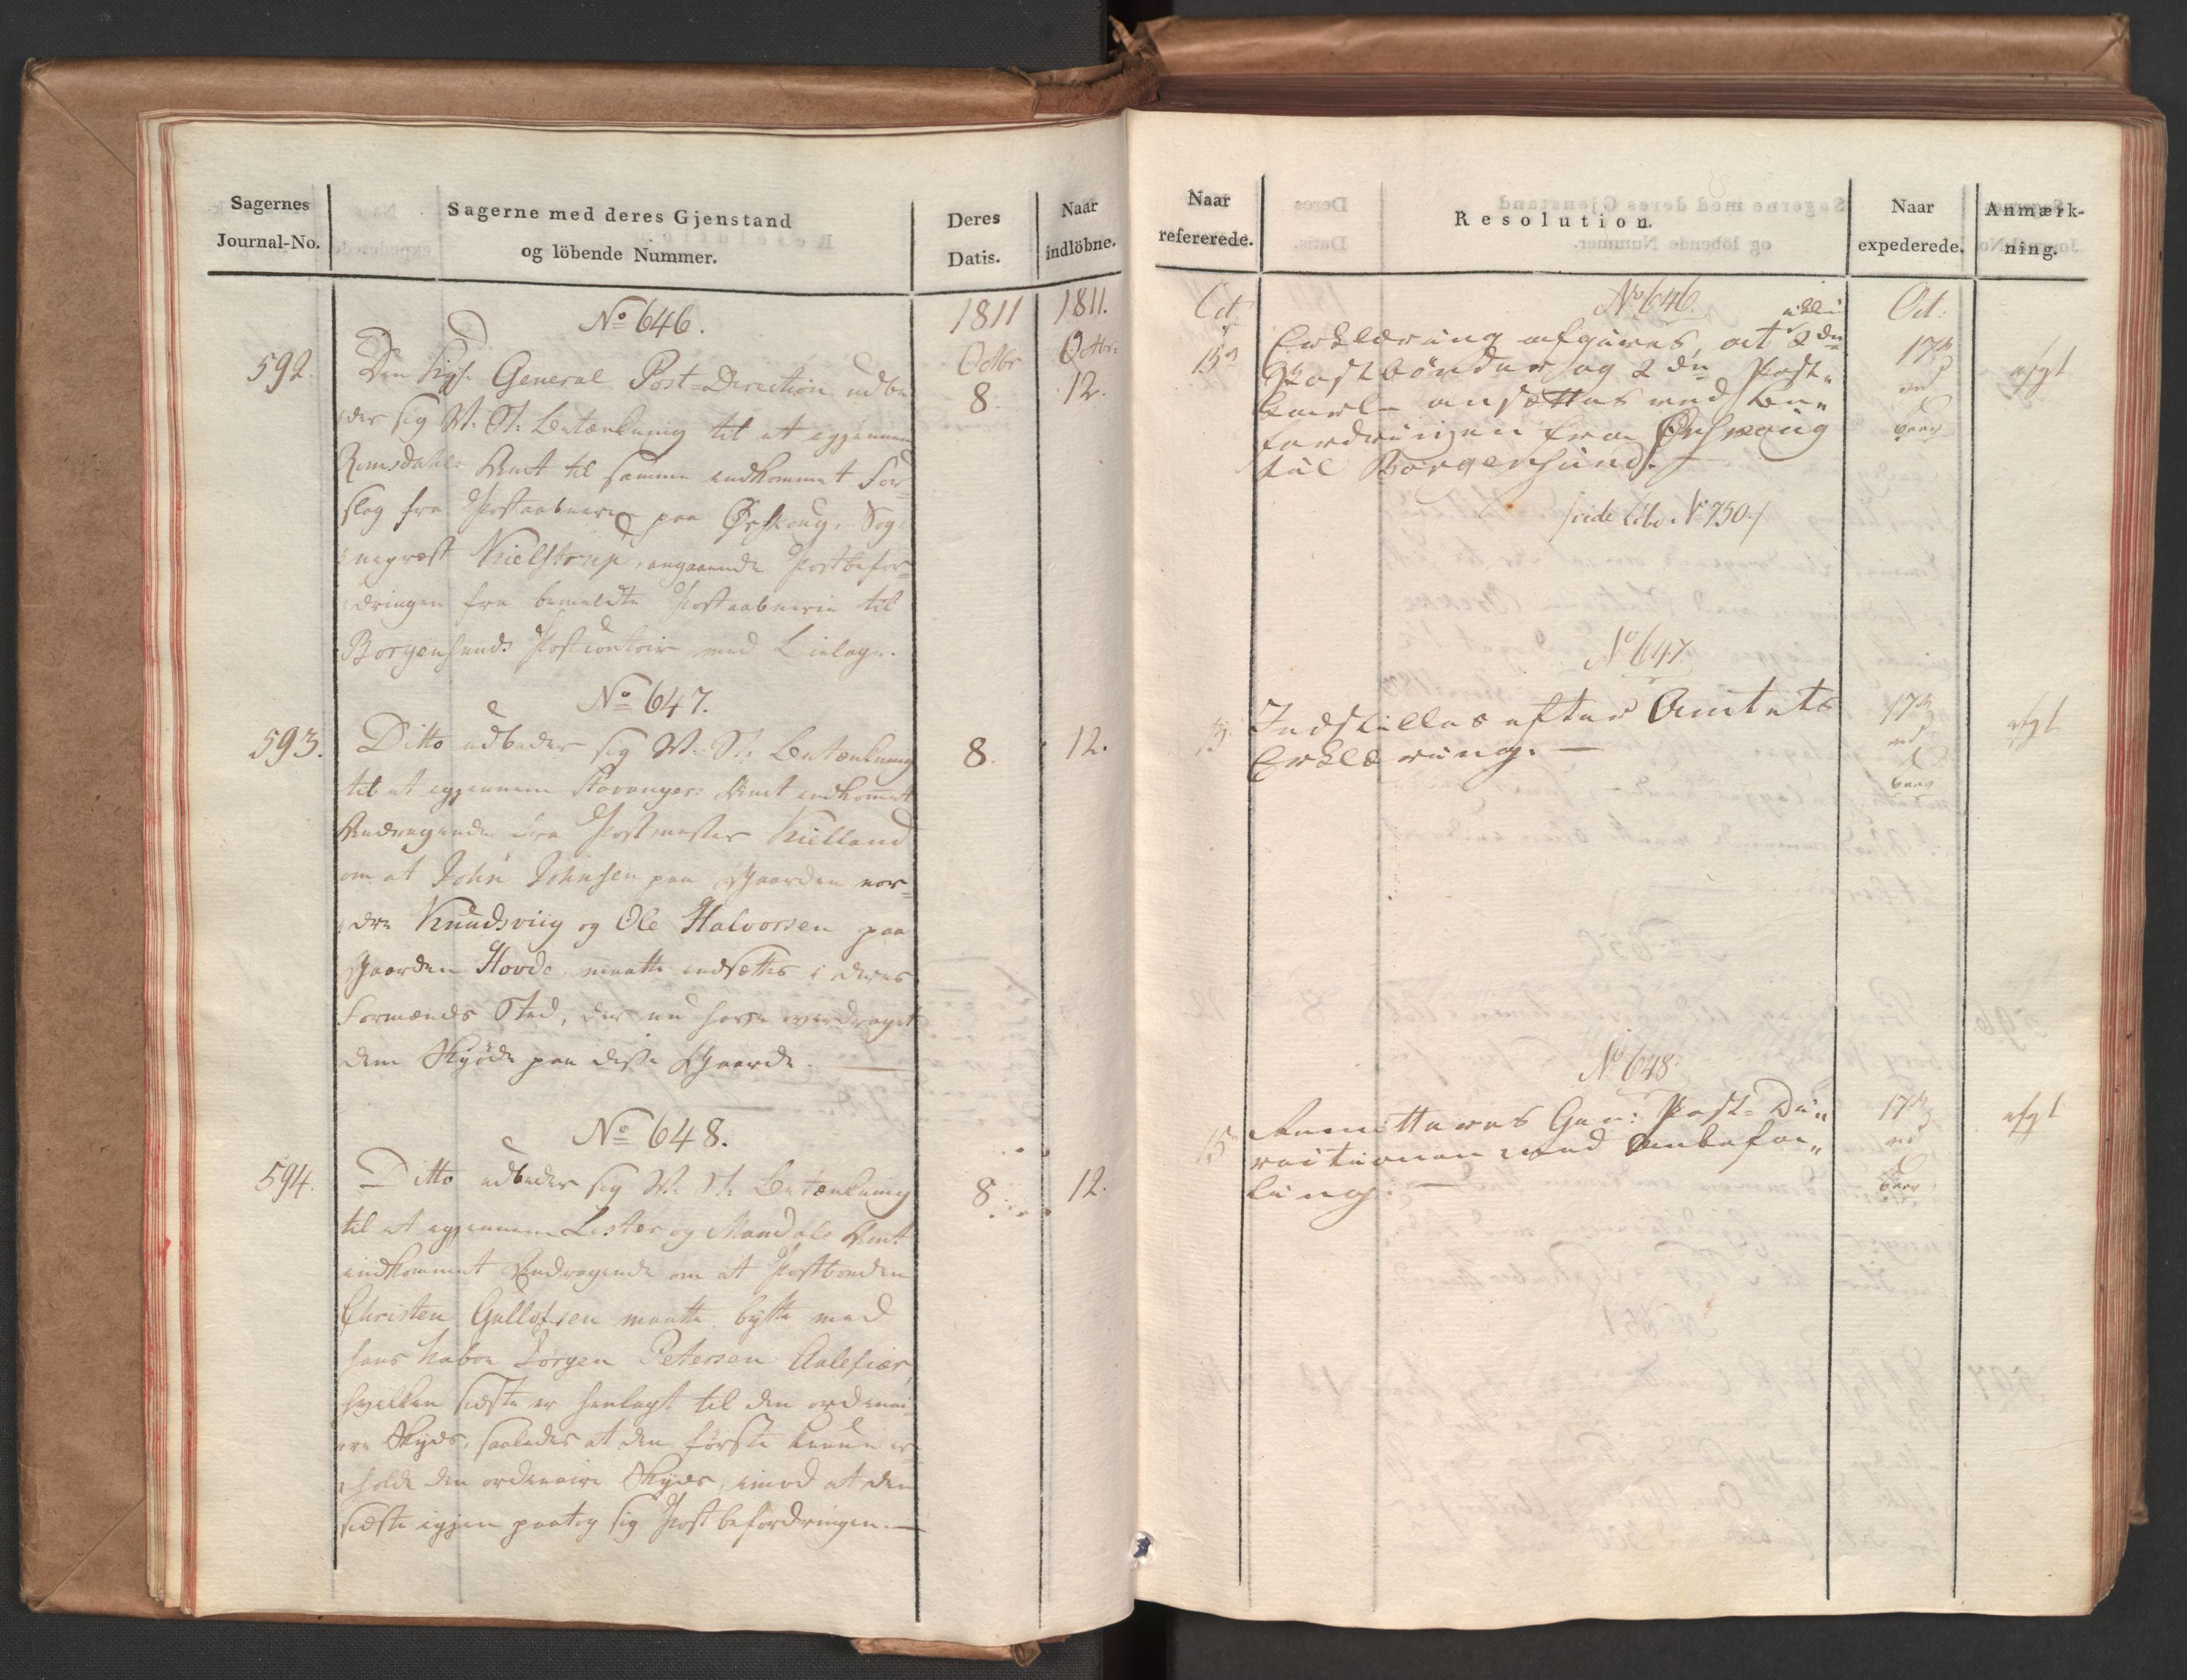 Sagernes
Journal-No.
Sagerne med deres Gjenstand
og löbende Nummer.
Deres
Datis.
Naar
indlöbne.
No 646.
1811
1811.
592.
Den Kgl. General Post-Direction udbe-
Octbr
Octbr:
8.
12.
der sig V: St: Betænkning til et igjennem
Romsdahls Amt til samme indkommet For-
slag fra Postaabner paa Ørskoug, Sog-
nepræst Kielstrup, angaaende Postbefor-
dringen fra bemeldte Postaabnerie til
Borgensunds Postcontoir med Bielage.
No 647.
593.
Ditto udbeder sig V: St: Betænkning
8.
12.
til et igjennem Stavanger Amt indkommet
Andragende fra Postmester Kielland
om at John Johnsen paa Gaarden nor-
dre Knudsviig og Ole Halvorsen paa
Gaarden Hovde maatte indsættes i deres
Formænds Sted, der nu have overdraget
dem Skjöde paa disse Gaarde.
No 648.
594.
Ditto udbeder sig V: St: Betænkning
8
12.
til et igjennem Lister og Mandals Amt
indkommet Andragende om at Postbonden
Christen Gullofsen maatte bytte med
hans Naboe Jörgen Petersen Aalefiær,
hvilken sidste er henlagt til den ordinai-
re Skyds, saaledes at den förste kunde
holde den ordinaire Skyds, imod at den
sidste igjen paatog sig Postbefordringen.
Naar
refererede.
Resolution.
Naar
expederede.
Anmærk-
ning.
Oct
No 646.
Oct:
15
Erklæring afgives, at 2de
Postbönder og 2de Post-
karle ansættes ved Be-
fordringen fra Ørskoug
til Borgensund.
17
afgt
(vide Lib: No 750)
No 647
15
Indstilles efter Amtets
Erklæring.
17
afgt
No 648.
15
Remitteres Gen: Post-Di-
rectionen med Anbefa-
ling.
17
afgt